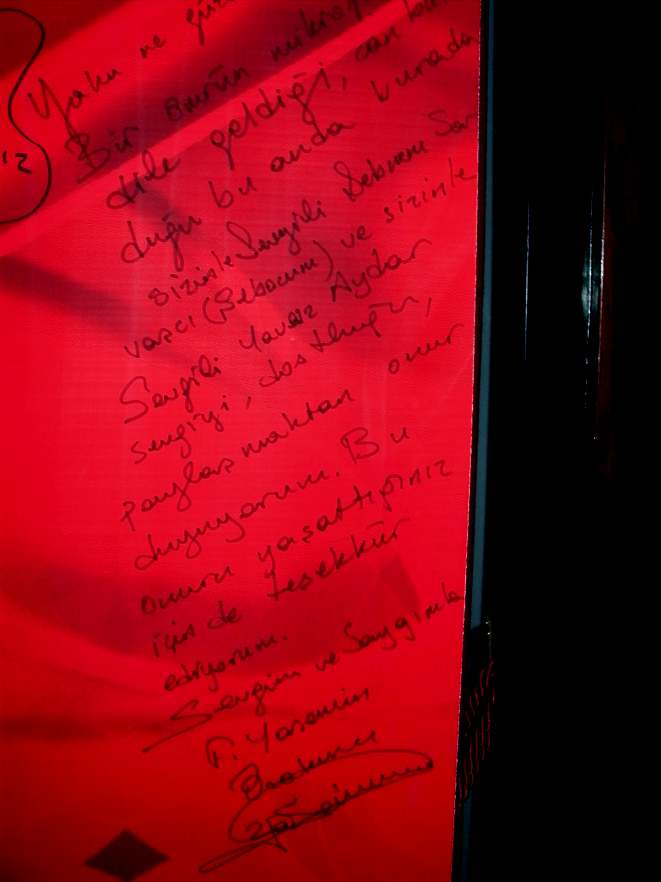 Yahu ne güz
Bir ömrün mikrof
dile geldiği, can bul
duğu bu anda burada
sizinle Sevgili Şebnem Sar
vaşcı (Şebocum) ve sizinle
Sevgili Yavuz Aydar
sevgiyi, dostluğu,
paylaşmaktan onur
duyuyorum. Bu
onuru yaşattığınız
için de teşekkür
ediyorum.
Sevgim ve Saygımla
F. Yasemin
iz